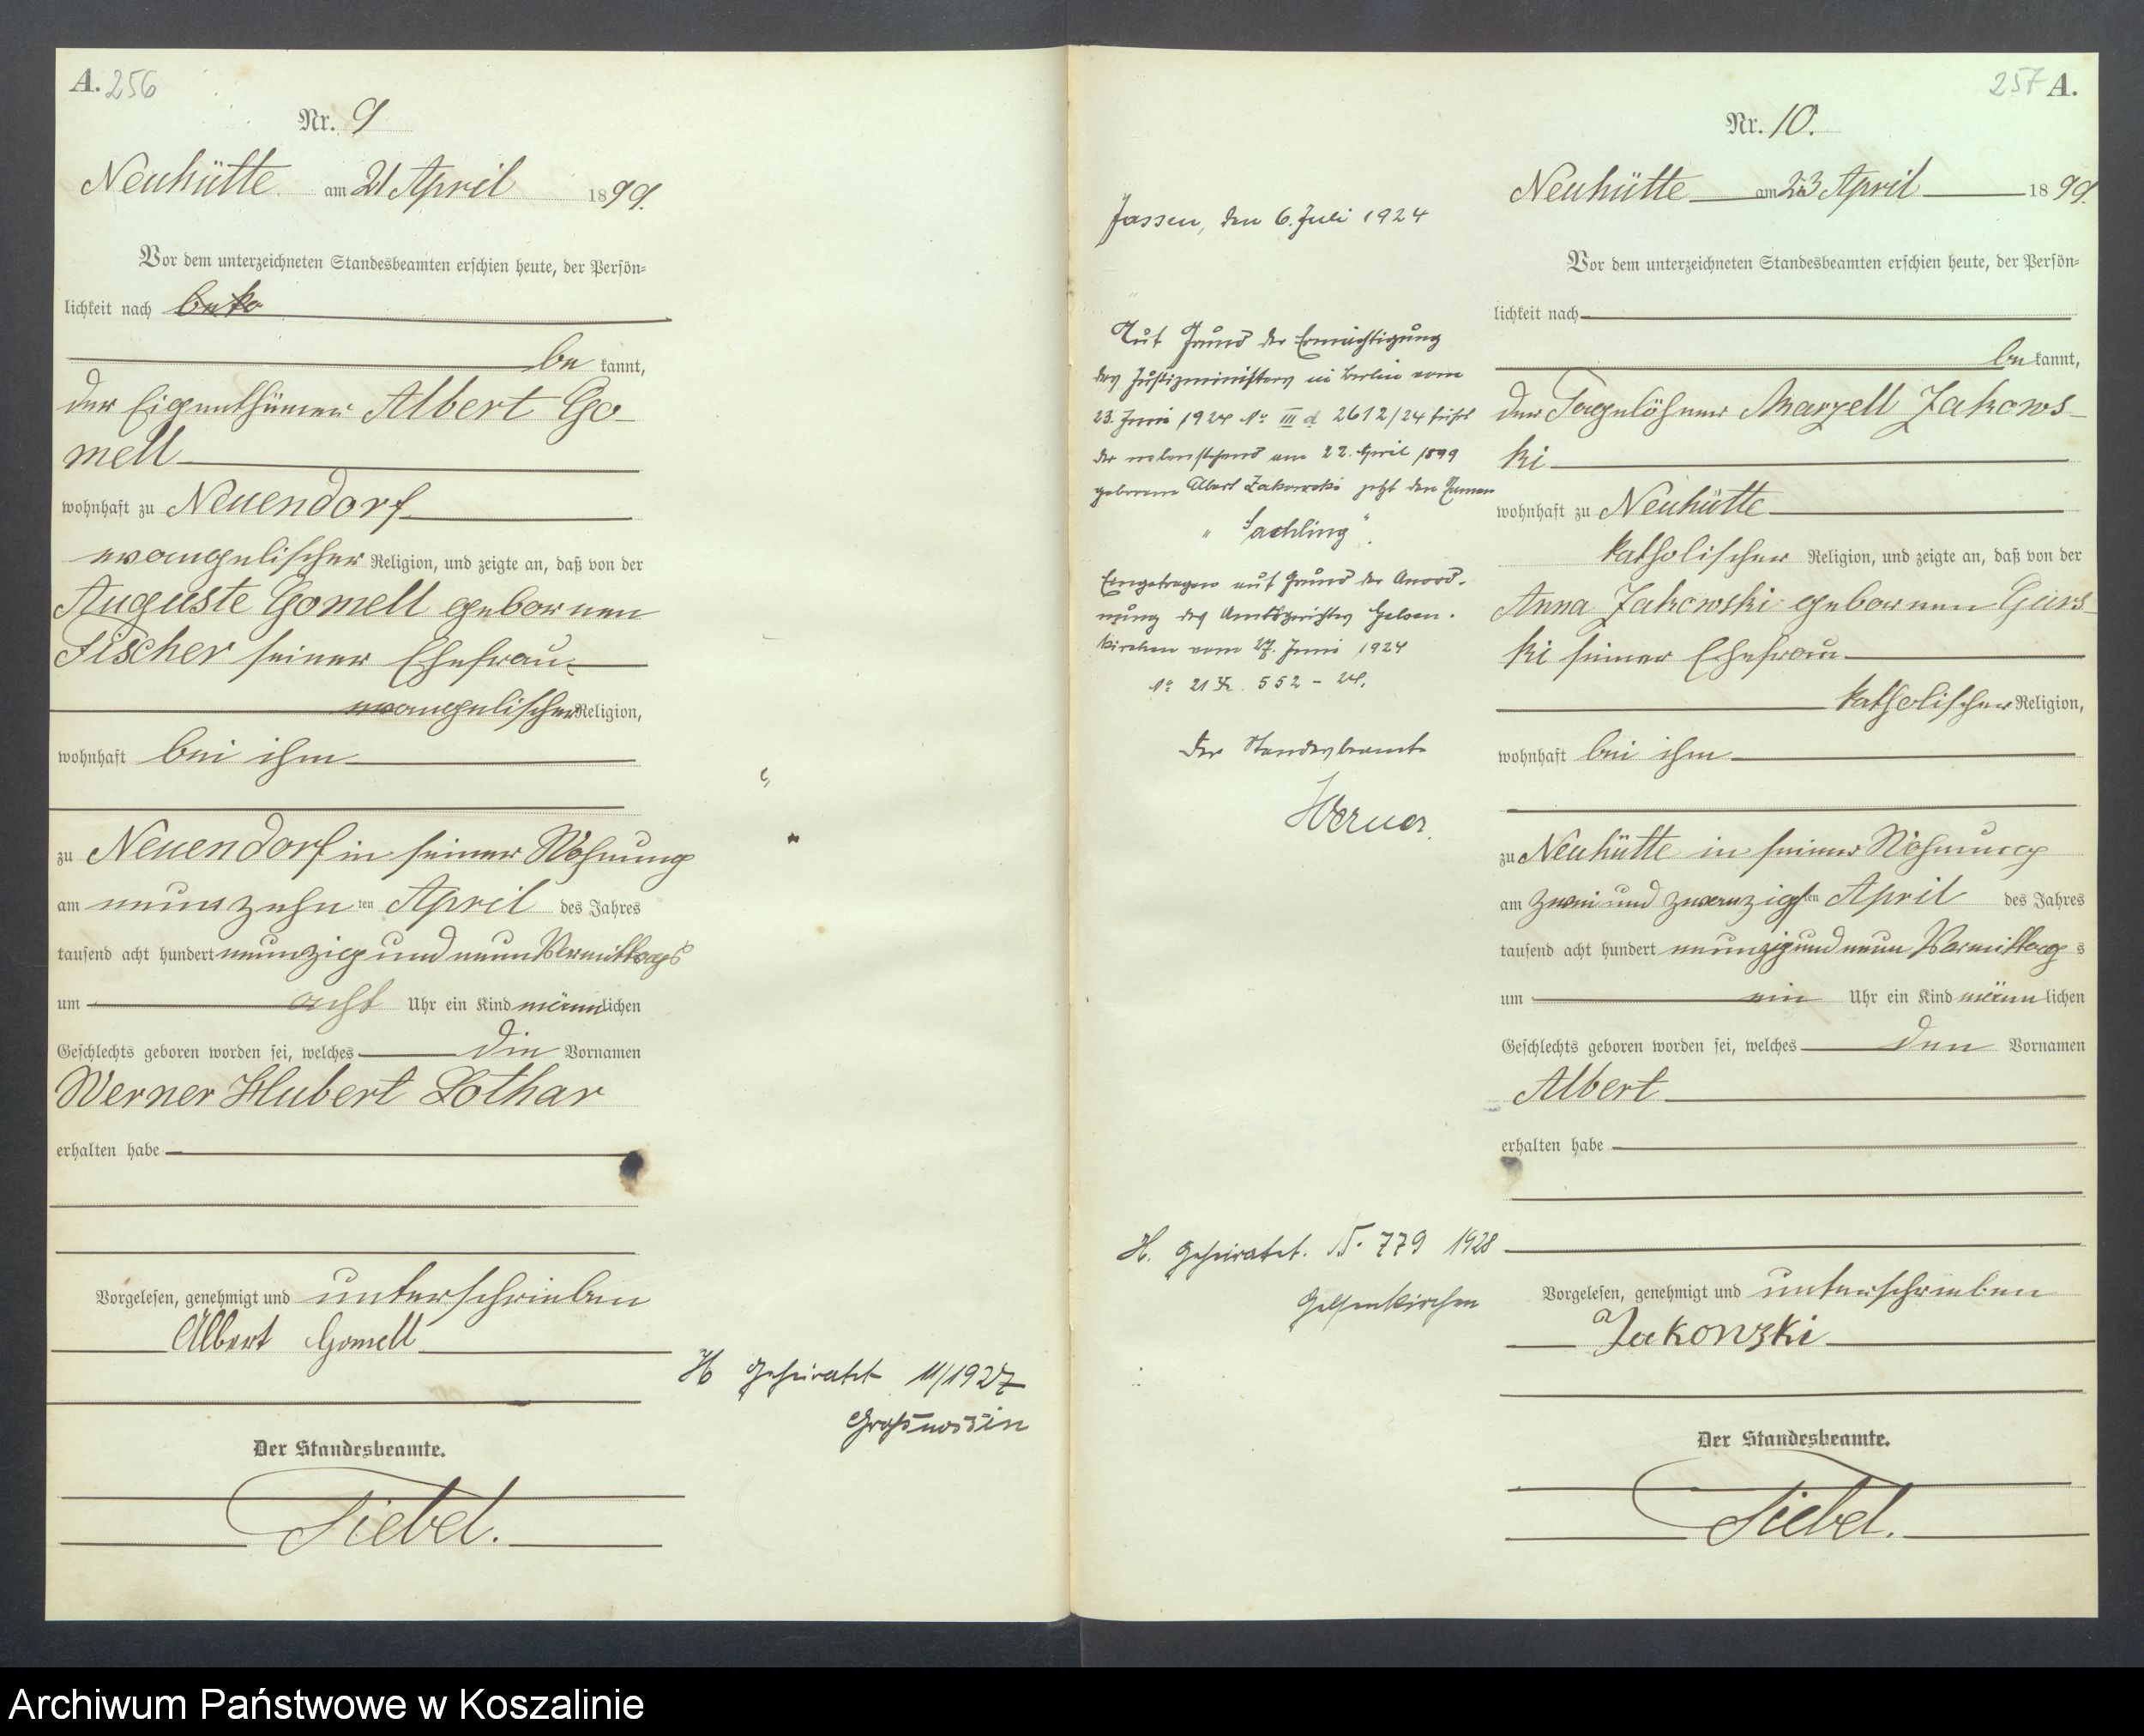 A. 256
Nr. 9
Neuhütte am 21 April 1899.
Vor dem unterzeichneten Standesbeamten erschien heute, der Persön-
lichkeit nach
be kannt,
der Eigenthümer Albert Go-
mell
wohnhaft zu Neuendorf
evangelischer Religion, und zeigte an, daß von der
Auguste Gomell geborenen
Fischer seiner Ehefrau
evangelischer Religion,
wohnhaft bei ihm
zu Neuendorf in seiner Wohnung
am neunzehnten April des Jahres
tausend acht hundert neunzig und neun Vormittags
um acht Uhr ein Kind männlichen
Geschlechts geboren worden sei, welches die Vornamen
Werner Hubert Lothar
erhalten habe
Vorgelesen, genehmigt und unterschrieben
Albert Gomell
Der Standesbeamte.
Tiebel.
H geheiratet 11/1927
Großnossin
257 A.
Nr. 10.
Neuhütte am 23 April 1899.
Vor dem unterzeichneten Standesbeamten erschien heute, der Persön-
lichkeit nach
be kannt,
der Tagelöhner Marzell Zakows-
ki
wohnhaft zu Neuhütte
katholischer Religion, und zeigte an, daß von der
Anna Zakowski geborenen
ki seiner Ehefrau
katholischer Religion,
wohnhaft bei ihm
zu Neuhütte in seiner Wohnung
am zwei und zwanzigsten April des Jahres
tausend acht hundert neunzig und neun Vormittags
um ein Uhr ein Kind männlichen
Geschlechts geboren worden sei, welches den Vornamen
Albert
erhalten habe
Vorgelesen, genehmigt und unterschrieben
Zakowski
Der Standesbeamte.
Tiebel.
Jassen, den 6. Juli 1924
Auf Grund der Ermächtigung
des Justizministers in Berlin vom
23. Juni 1924 No III d 2612/24 führt
der nebenstehend am 22. April 1899
geborene Albert Zakowski jetzt den Namen
" Sachling ".
Eingetragen auf Grund der Anord-
nung des Amtsgerichtes Gelsen-
kirchen vom 27. Juni 1924
No 21 X. 552 - 24.
Der Standesbeamte
Werner.
H. geheiratet. 779 1928
Gelsenkirchen
Archiwum Państwowe w Koszalinie